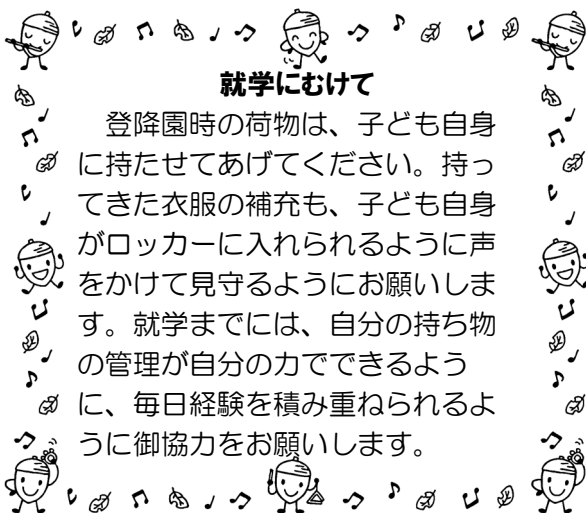 就学にむけて
登降園時の荷物は、子ども自身
に持たせてあげてください。持っ
てきた衣服の補充も、子ども自身
がロッカーに入れられるように声
をかけて見守るようにお願いしま
す。就学までには、自分の持ち物
の管理が自分の力でできるよう
に、毎日経験を積み重ねられるよ
うに御協力をお願いします。